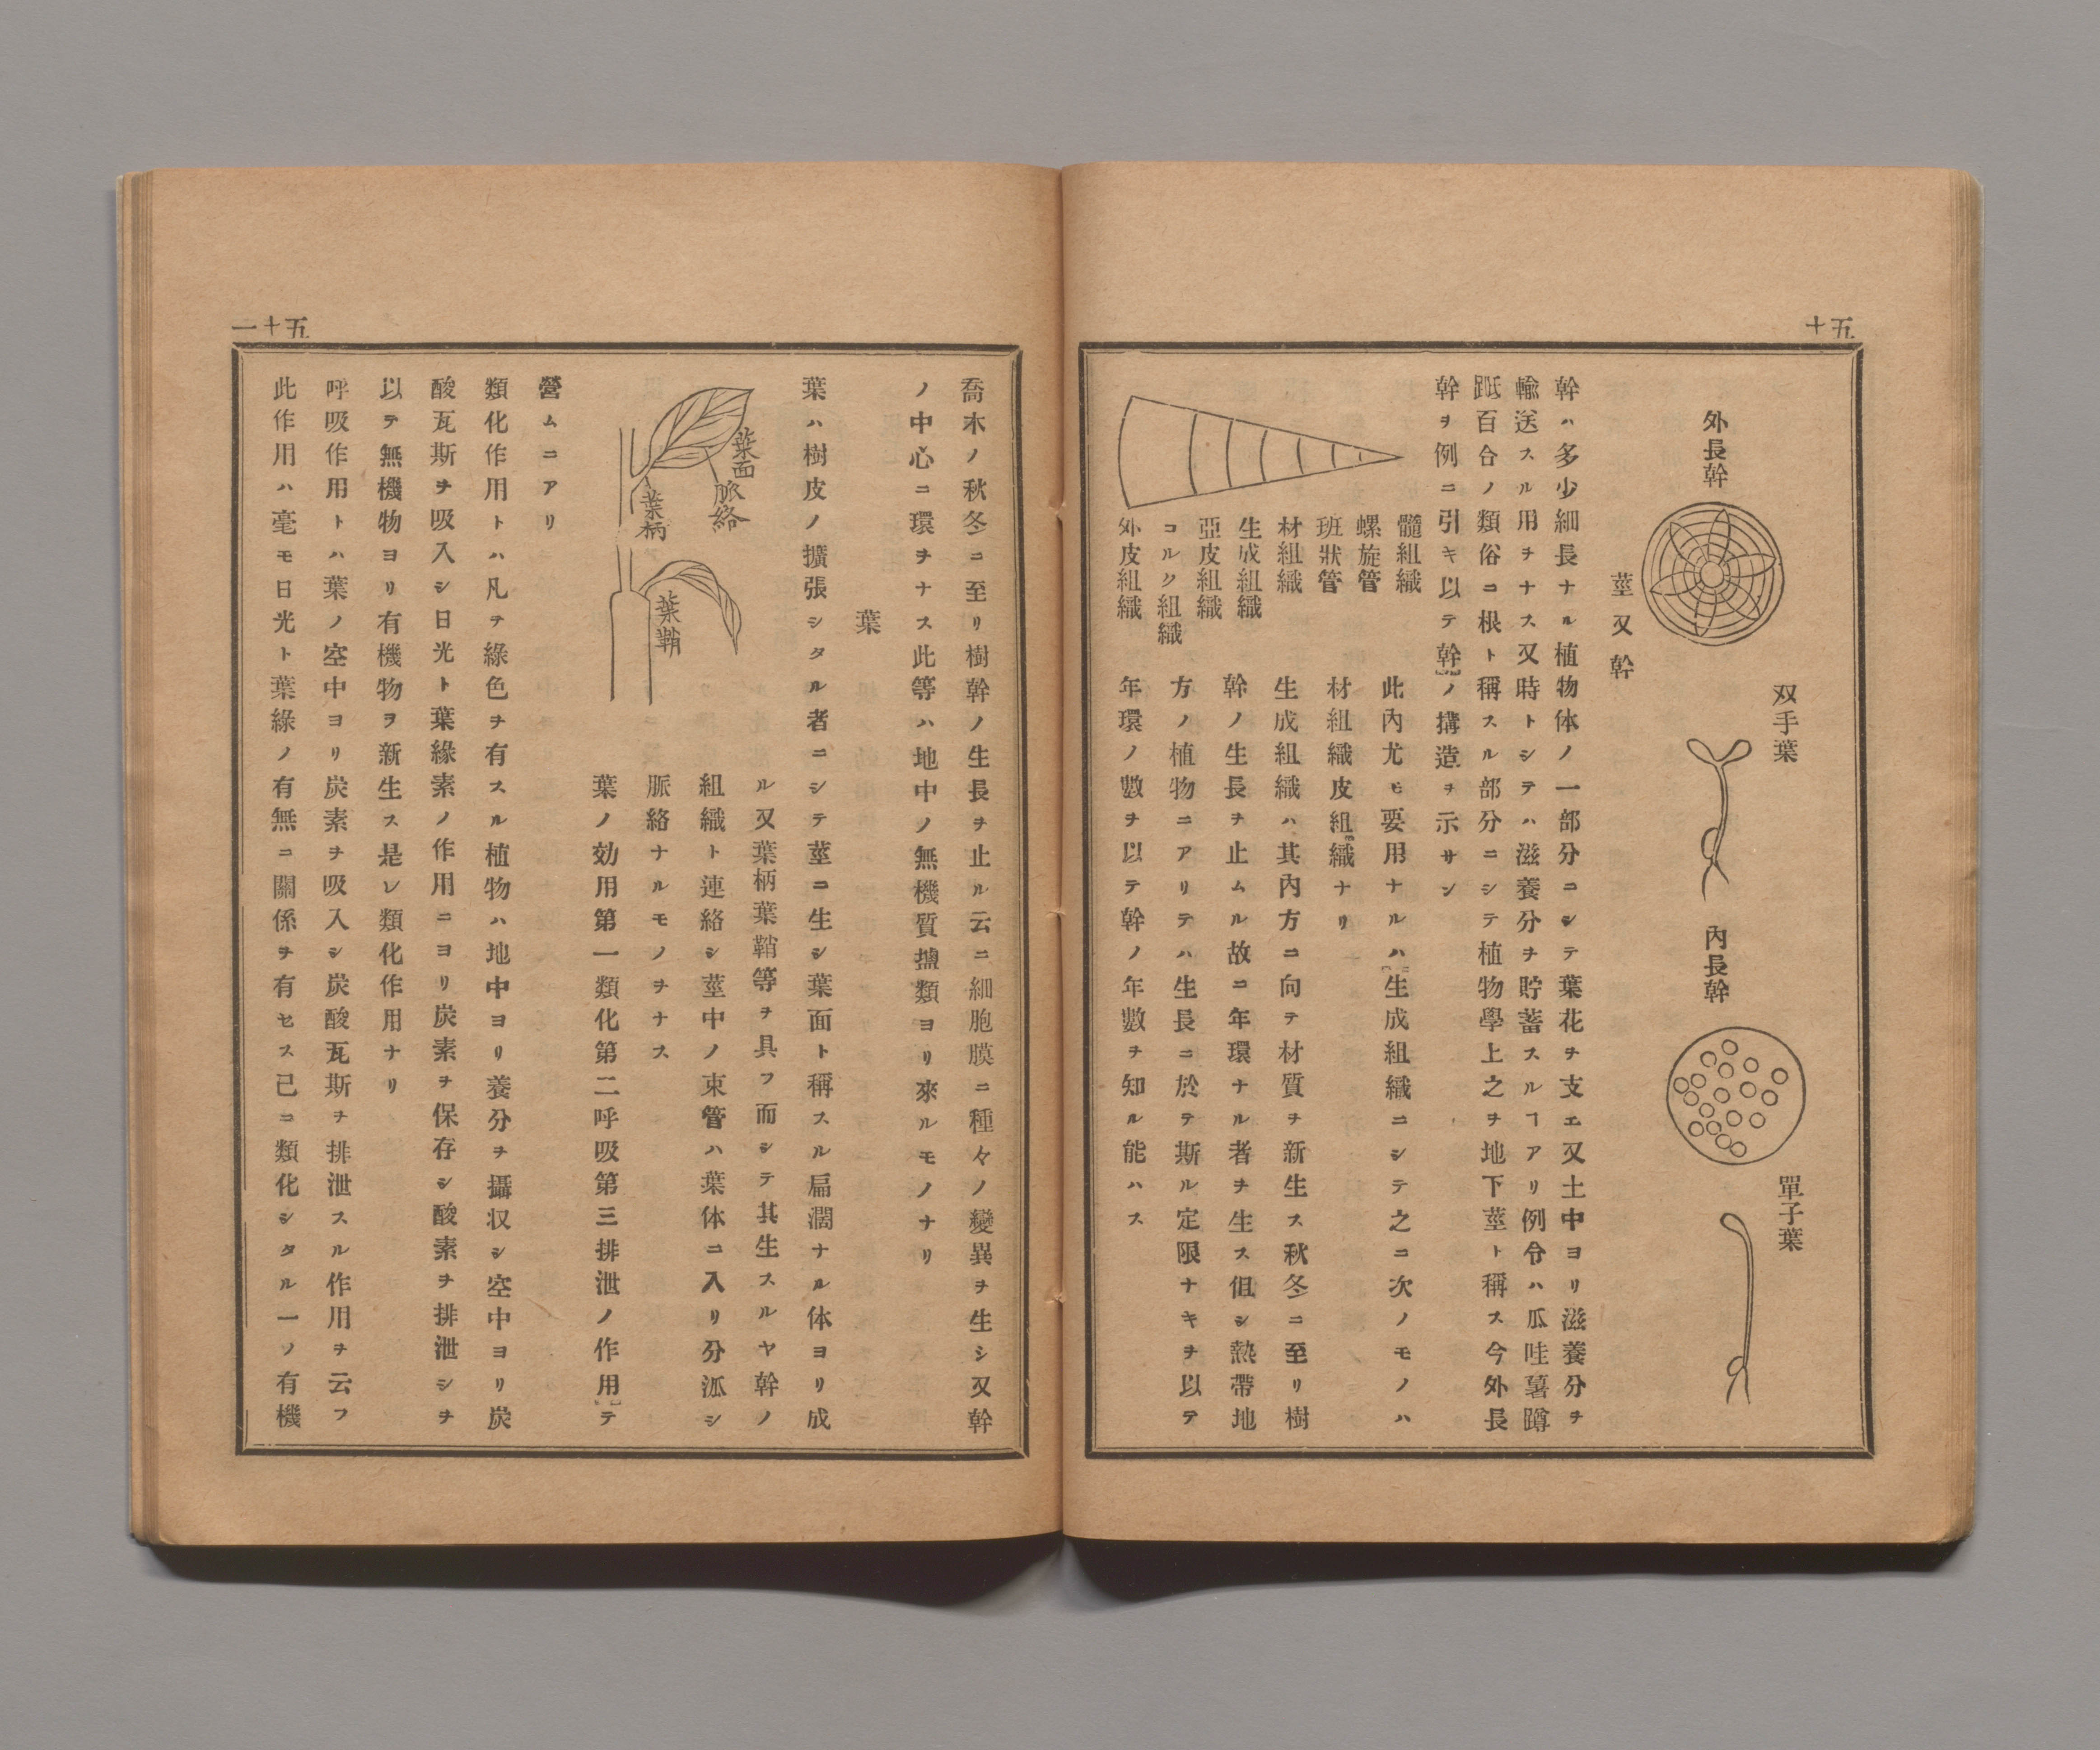 五十
外長幹
双手葉
內長幹
單子葉
莖又幹
幹ハ多少細長ナル植物体ノ一部分ニシテ葉花ヲ支エ又土中ヨリ滋養分ヲ
輸送スル用ヲナス又時トシテハ滋養分ヲ貯蓄スルヿアリ例令ハ瓜哇薯蹲
蹞百合ノ類俗ニ根ト稱スル部分ニシテ植物學上之ヲ地下莖ト稱ス今外長
幹ヲ例ニ引キ以テ幹ノ搆造ヲ示サン
髓組織
螺旋管
班狀管
材組織
生成組織
亞皮組織
コルク組織
外皮組織
此內尤モ要用ナルハ生成組織ニシテ之ニ次ノモノハ
材組織皮組織ナリ
生成組織ハ其內方ニ向テ材質ヲ新生ス秋冬ニ至リ樹
幹ノ生長ヲ止ムル故ニ年環ナル者ヲ生ス但シ熱帶地
方ノ植物ニアリテハ生長ニ於テ斯ル定限ナキヲ以テ
年環ノ數ヲ以テ幹ノ年數ヲ知ル能ハス
五十一
喬木ノ秋冬ニ至リ樹幹ノ生長ヲ止ル云ニ細胞膜ニ種々ノ變異ヲ生シ又幹
ノ中心ニ環ヲナス此等ハ地中ノ無機質塩類ヨリ來ルモノナリ
葉
葉ハ樹皮ノ擴張シタル者ニシテ莖ニ生シ葉面ト稱スル扁濶ナル体ヨリ成
ル又葉柄葉鞘等ヲ具フ而シテ其生スルヤ幹ノ
組織ト連絡シ莖中ノ束管ハ葉体ニ入リ分泒シ
脈絡ナルモノヲナス
葉面
脈絡
葉柄
葉鞘
葉ノ効用第一類化第二呼吸第三排泄ノ作用テ
營ムニアリ
類化作用トハ凡テ綠色ヲ有スル植物ハ地中ヨリ養分ヲ攝収シ空中ヨリ炭
酸瓦斯ヲ吸入シ日光ト葉緣素ノ作用ニヨリ炭素ヲ保存シ酸素ヲ排泄シヲ
以テ無機物ヨリ有機物ヲ新生ス是レ類化作用ナリ
呼吸作用トハ葉ノ空中ヨリ炭素ヲ吸入シ炭酸瓦斯ヲ排泄スル作用ヲ云フ
此作用ハ毫モ日光ト葉綠ノ有無ニ關係ヲ有セス己ニ類化シタル一ノ有機